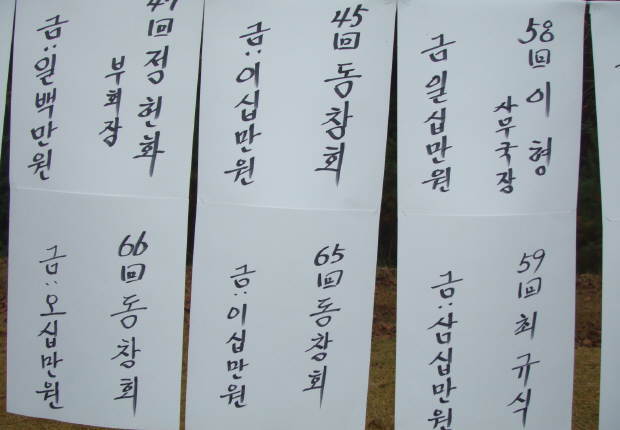 回 정헌화
부회장
금:일백만원
45回 동창회
금:이십만원
58回 이 형
사무국장
금 일십만원
66回 동창회
금:오십만원
65回 동창회
금:이십만원
59回 최규식
금:삼십만원